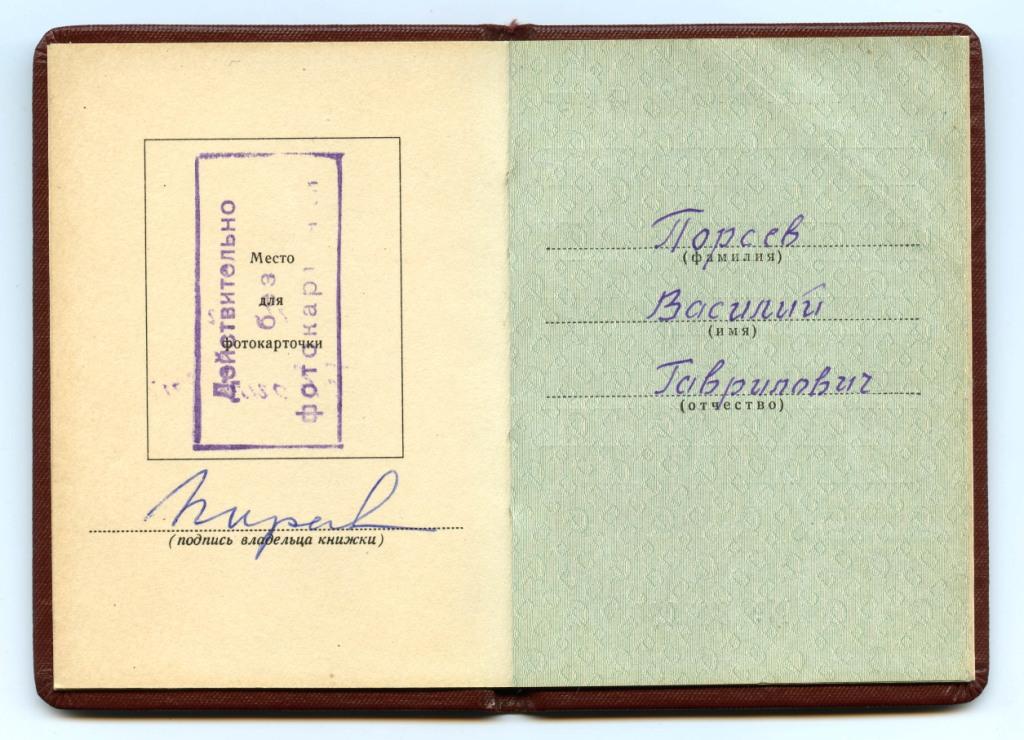 Действительно
без
фотокар
Место
для
фотокарточки
(подпись владельца книжки)
Порсев
(фамилия)
Василий
(имя)
Гаврилович
(отчество)